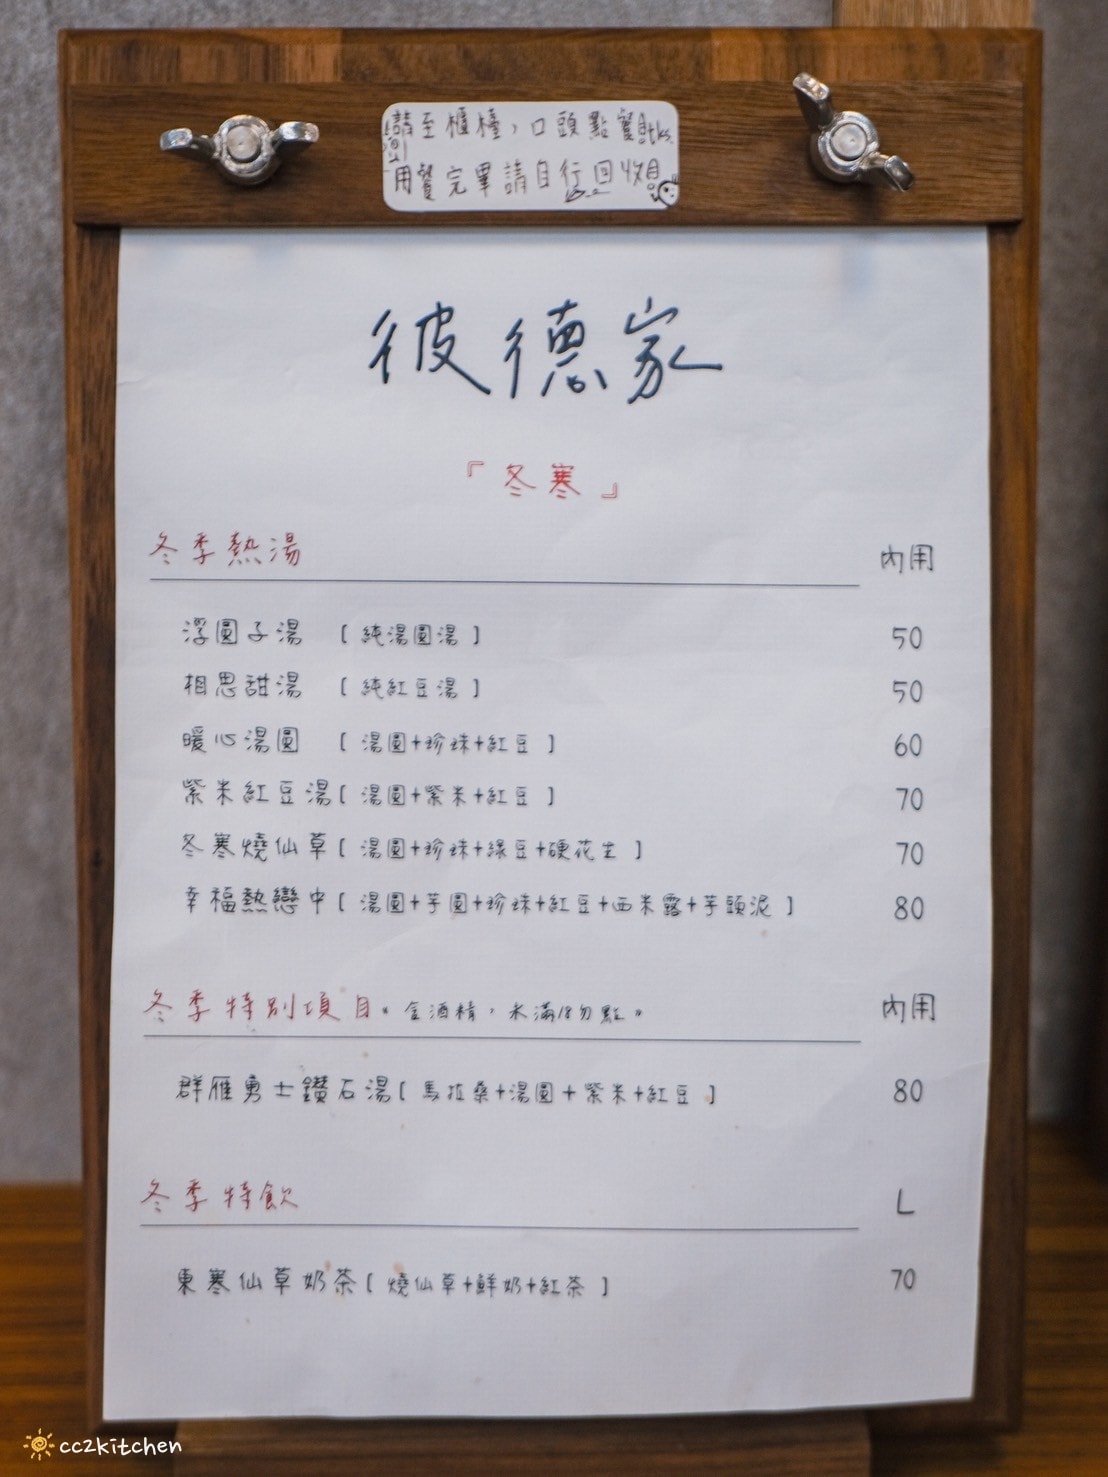 請至櫃檯，口頭點餐tks.
用餐完畢請自行回收
彼德家
『冬寒』
冬季熱湯 內用
浮圓子湯 [ 純湯圓湯 ] 50
相思甜湯 [ 純紅豆湯 ] 50
暖心湯圓 [ 湯圓+珍珠+紅豆 ] 60
紫米紅豆湯 [ 湯圓+紫米+紅豆 ] 70
冬寒燒仙草 [ 湯圓+珍珠+綠豆+硬花生 ] 70
幸福熱戀中 [ 湯圓+芋圓+珍珠+紅豆+西米露+芋頭泥 ] 80
冬季特別項目。含酒精，未滿18勿點。 內用
群雁勇士鑽石湯 [ 馬拉桑+湯圓+紫米+紅豆 ] 80
冬季特飲 L
東寒仙草奶茶 [ 燒仙草+鮮奶+紅茶 ] 70
cc2kitchen